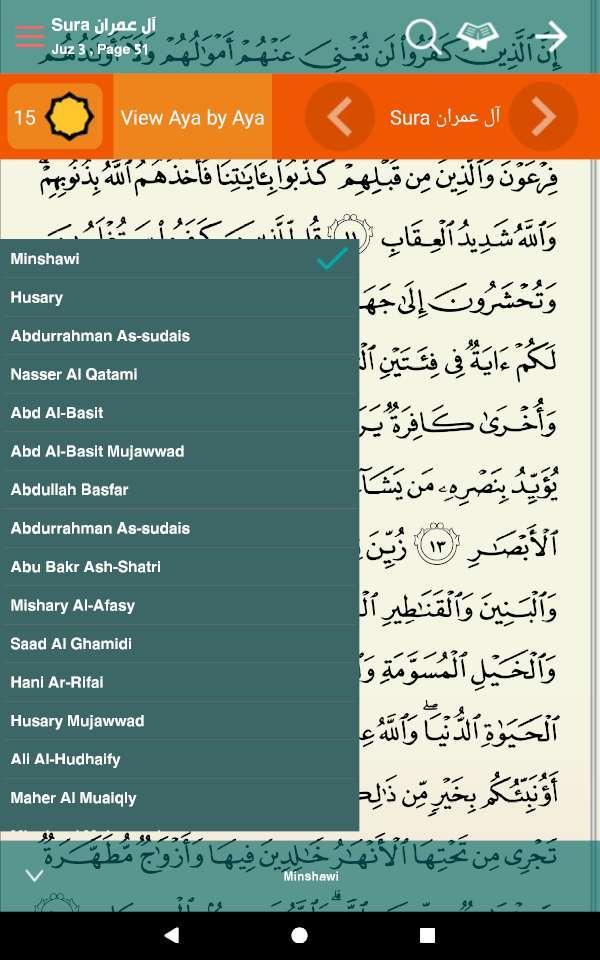 Sura آل عمران
Juz 3 , Page 51
إِنَّ ٱلَّذِينَ كَفَرُوا۟ لَن تُغْنِىَ عَنْهُمْ أَمْوَٰلُهُمْ وَلَآ أَوْلَٰدُهُم
15
View Aya by Aya
Sura آل عمران
فِرْعَوْنَ وَٱلَّذِينَ مِن قَبْلِهِمْ كَذَّبُوا۟ بِـَٔايَٰتِنَا فَأَخَذَهُمُ ٱللَّهُ بِذُنُوبِهِمْ
وَٱللَّهُ شَدِيدُ ٱلْعِقَابِ ١١ قُل لِّلَّذِينَ كَفَرُوا۟ سَتُغْلَبُونَ
وَتُحْشَرُونَ إِلَىٰ جَهَ
لَكُمْ ءَايَةٌ فِى فِئَتَيْنِ
وَأُخْرَىٰ كَافِرَةٌ يَرَ
يُؤَيِّدُ بِنَصْرِهِۦ مَن يَشَآ
ٱلْأَبْصَٰرِ ١٣ زُيِّنَ
وَٱلْبَنِينَ وَٱلْقَنَٰطِيرِ
وَٱلْخَيْلِ ٱلْمُسَوَّمَةِ
ٱلْحَيَوٰةِ ٱلدُّنْيَا ۖ وَٱللَّهُ
أَؤُنَبِّئُكُم بِخَيْرٍ مِّن ذَٰلِكُ
Minshawi
Husary
Abdurrahman As-sudais
Nasser Al Qatami
Abd Al-Basit
Abd Al-Basit Mujawwad
Abdullah Basfar
Abdurrahman As-sudais
Abu Bakr Ash-Shatri
Mishary Al-Afasy
Saad Al Ghamidi
Hani Ar-Rifai
Husary Mujawwad
Ali Al-Hudhaify
Maher Al Muaiqly
تَجْرِى مِن تَحْتِهَا ٱلْأَنْهَٰرُ خَٰلِدِينَ فِيهَا وَأَزْوَٰجٌ مُّطَهَّرَةٌ
Minshawi